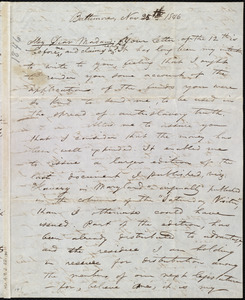 Baltimore, Nov. 25th, 1846
My Dear Madam, Your letter of the 12th is
before me and
to write to you feeling that I ought
to render you some account of the
application of the funds you were
so kind to send me, to be used in
the spread of anti-slavery truth
me to assure you
that I consider that the money has
been well expended. It enabled me
to issue a larger edition of the
last document I published, viz:
Slavery in Maryland - originally published
in the columns of the Saturday Visiter,
than I otherwise could have
issued. Part of the edition has
been already distributed
and the residue I am holding
in reserve for distribution during
the meeting of our next Legislature
- for, believe me, it is my